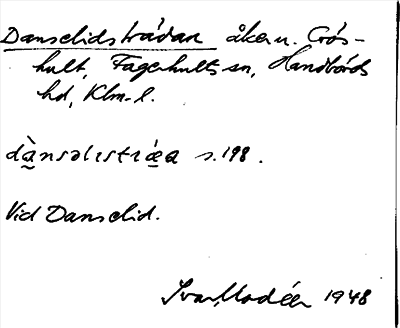 Danselidsträdan åkern. Crós-
hult, Fagerhults sn, Handbörds
hd, Klm. l.
dànsəlıstrǽa s. 198.
Vid Danselid.
Ivar Modéer 1948